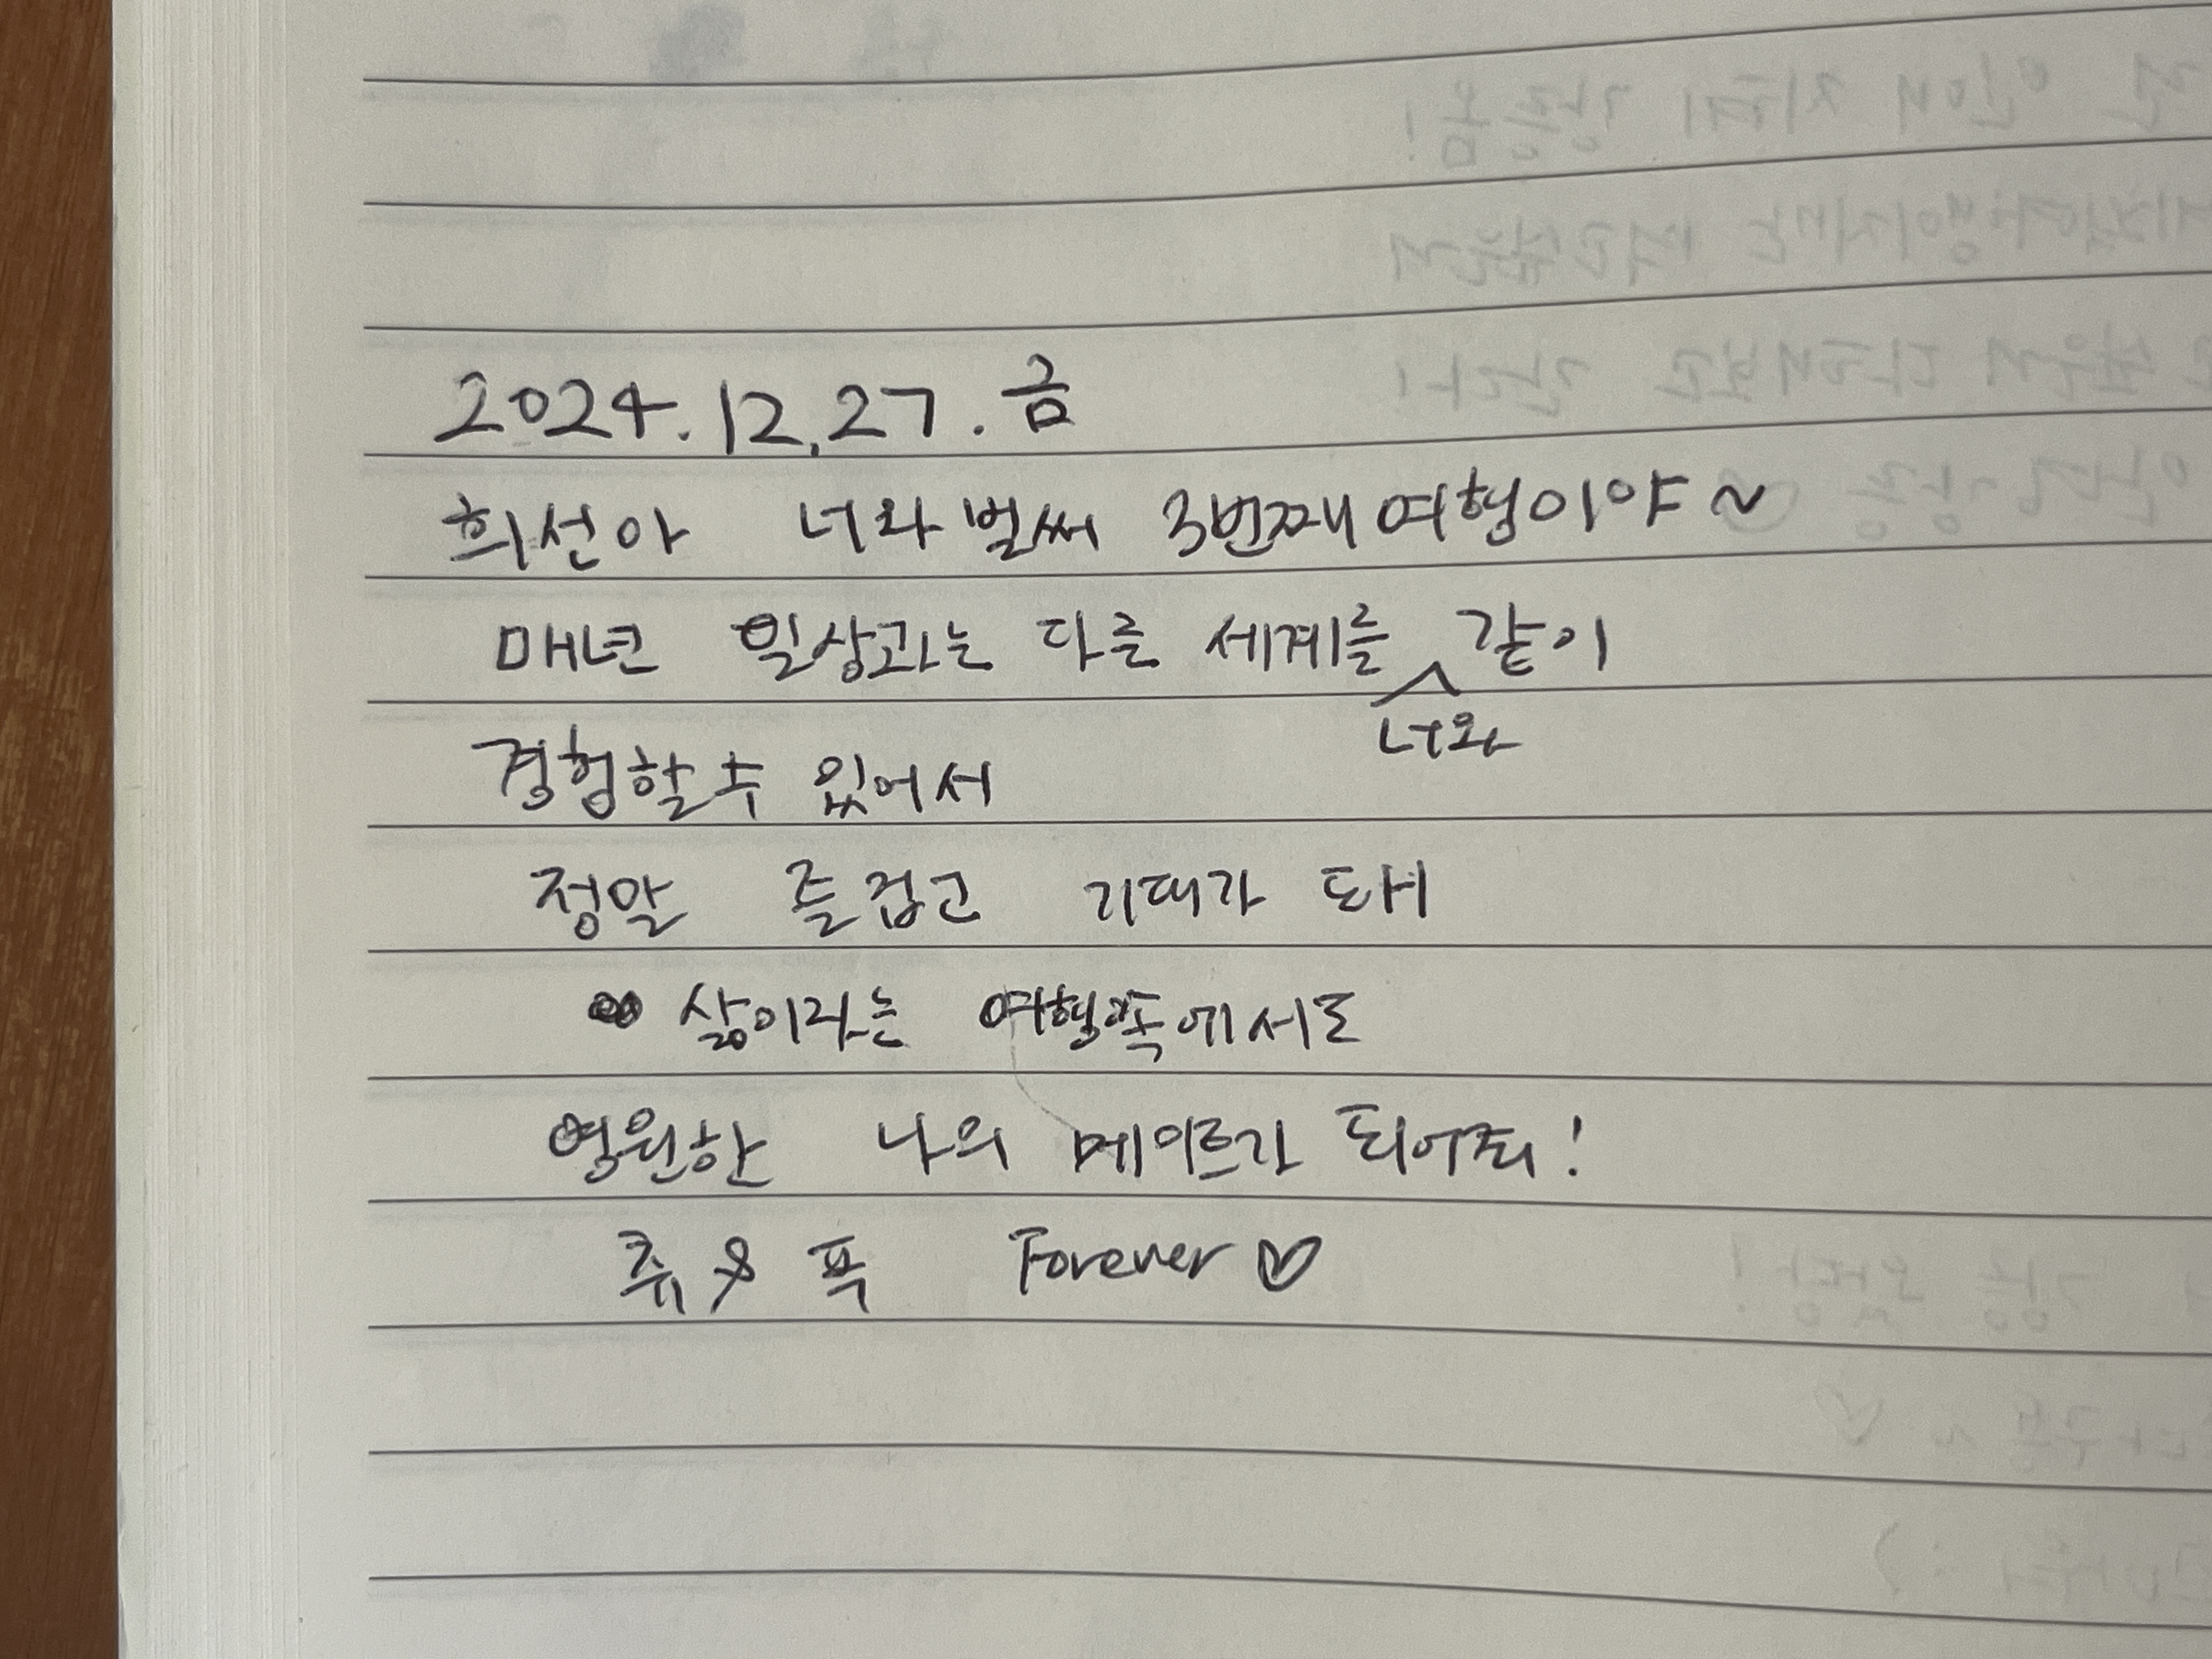 2024.12.27.금
희선아 너와 벌써 3번째 여행이야~
매년 일상과는 다른 세계를 너와 같이
경험할 수 있어서
정말 즐겁고 기대가 돼
삶이라는 여행쪽에서도
영원한 나의 메이트가 되어줘!
쥬 & 폭 Forever♡